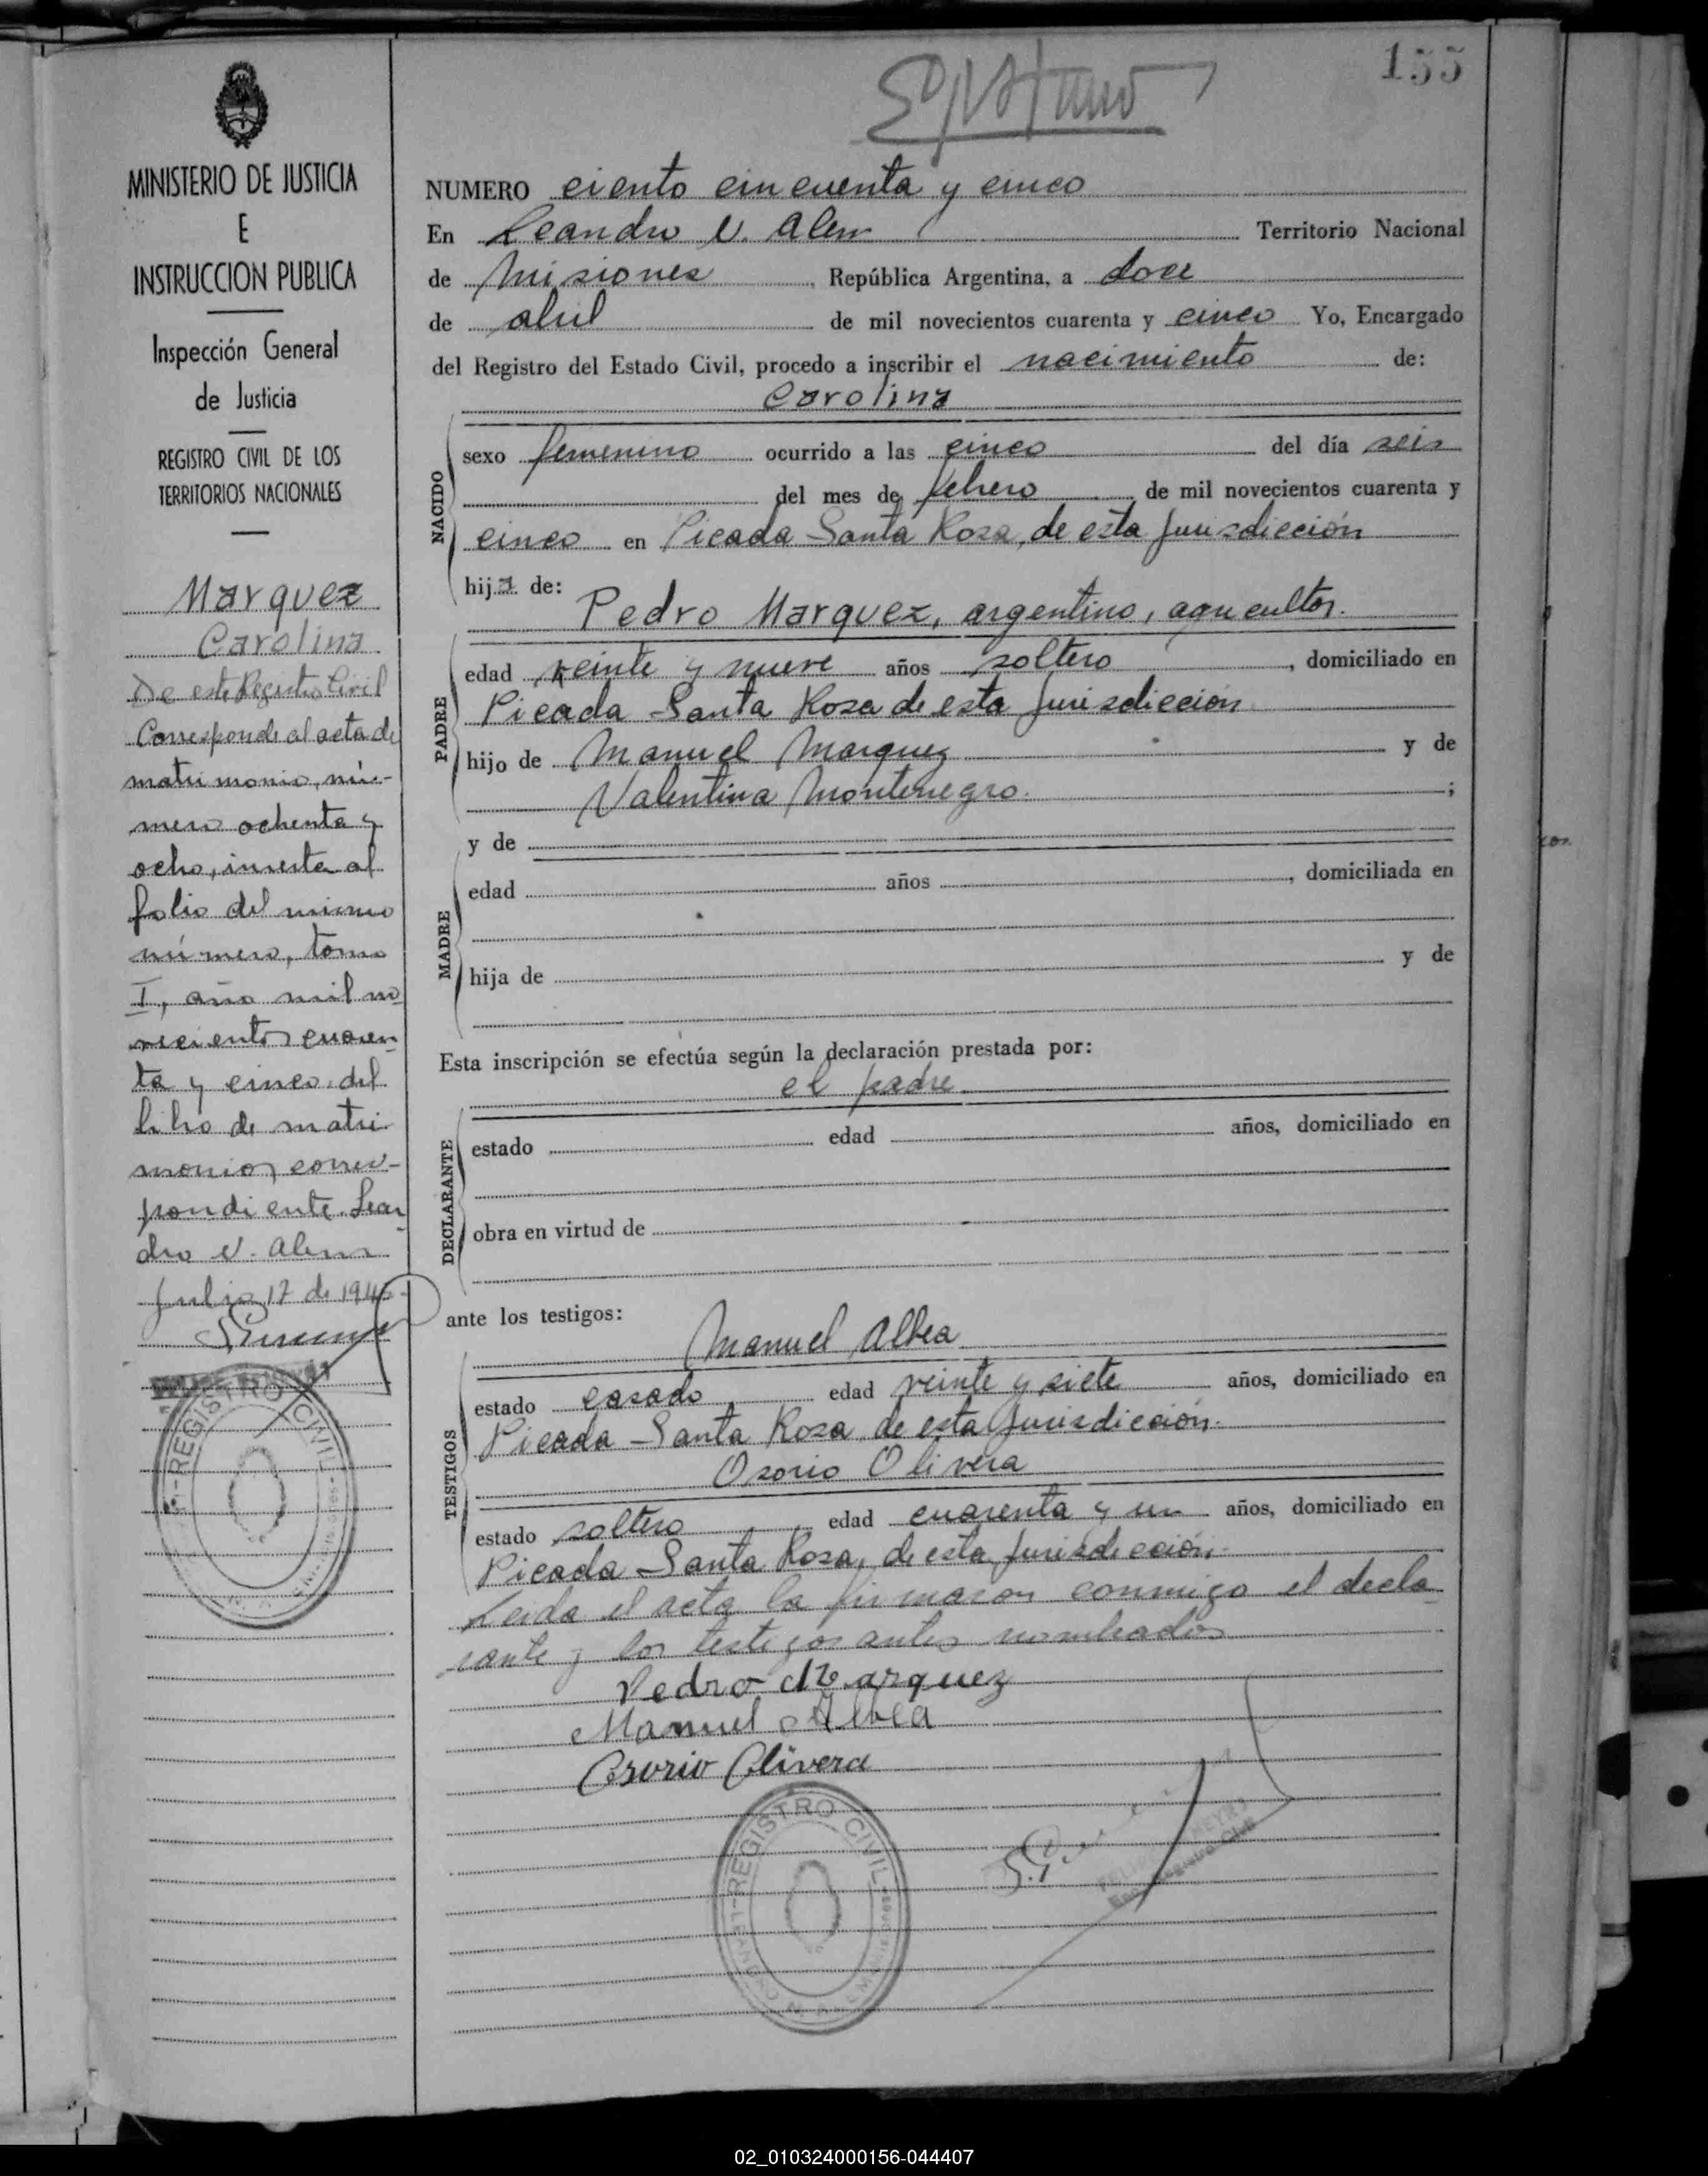 155
MINISTERIO DE JUSTICIA
E
INSTRUCCION PUBLICA
Inspección General
de Justicia
REGISTRO CIVIL DE LOS
TERRITORIOS NACIONALES
Marquez
Carolina
De este Registro Civil
Corresponde al acta de
matrimonio, nú-
mero ochenta y
ocho, inserta al
folio del mismo
número, tomo
I, año mil no
vecientos cuaren
ta y cinco, del
libro de matri
monios corres-
pondiente. Lean
dro N. Alem
Julio 17 de 1945
REGISTRO CIVIL
NUMERO ciento cincuenta y cinco
En Leandro N. Alem Territorio Nacional
de Misiones, República Argentina, a doce
de abril de mil novecientos cuarenta y cinco Yo, Encargado
del Registro del Estado Civil, procedo a inscribir el nacimiento de:
Carolina
NACIDO
sexo femenino ocurrido a las cinco del día seis
del mes de febrero de mil novecientos cuarenta y
cinco en Picada Santa Rosa, de esta jurisdicción
hija de:
Pedro Marquez, argentino, agricultor.
PADRE
edad veinte y nueve años soltero, domiciliado en
Picada Santa Rosa de esta jurisdicción
hijo de Manuel Marquez y de
Valentina Montenegro. ;
y de
MADRE
edad años , domiciliada en
hija de y de
Esta inscripción se efectúa según la declaración prestada por:
el padre
DECLARANTE
estado edad años, domiciliado en
obra en virtud de
ante los testigos:
Manuel Albea
TESTIGOS
estado casado edad veinte y siete años, domiciliado en
Picada Santa Rosa, de esta jurisdicción.
Osorio Olivera
estado soltero edad cuarenta y un años, domiciliado en
Picada Santa Rosa, de esta jurisdicción.
Leida el acta la firmaron conmigo el decla
rante y los testigos antes nombrados
Pedro Marquez
Manuel Albea
Osorio Olivera
REGISTRO CIVIL
02_010324000156-044407